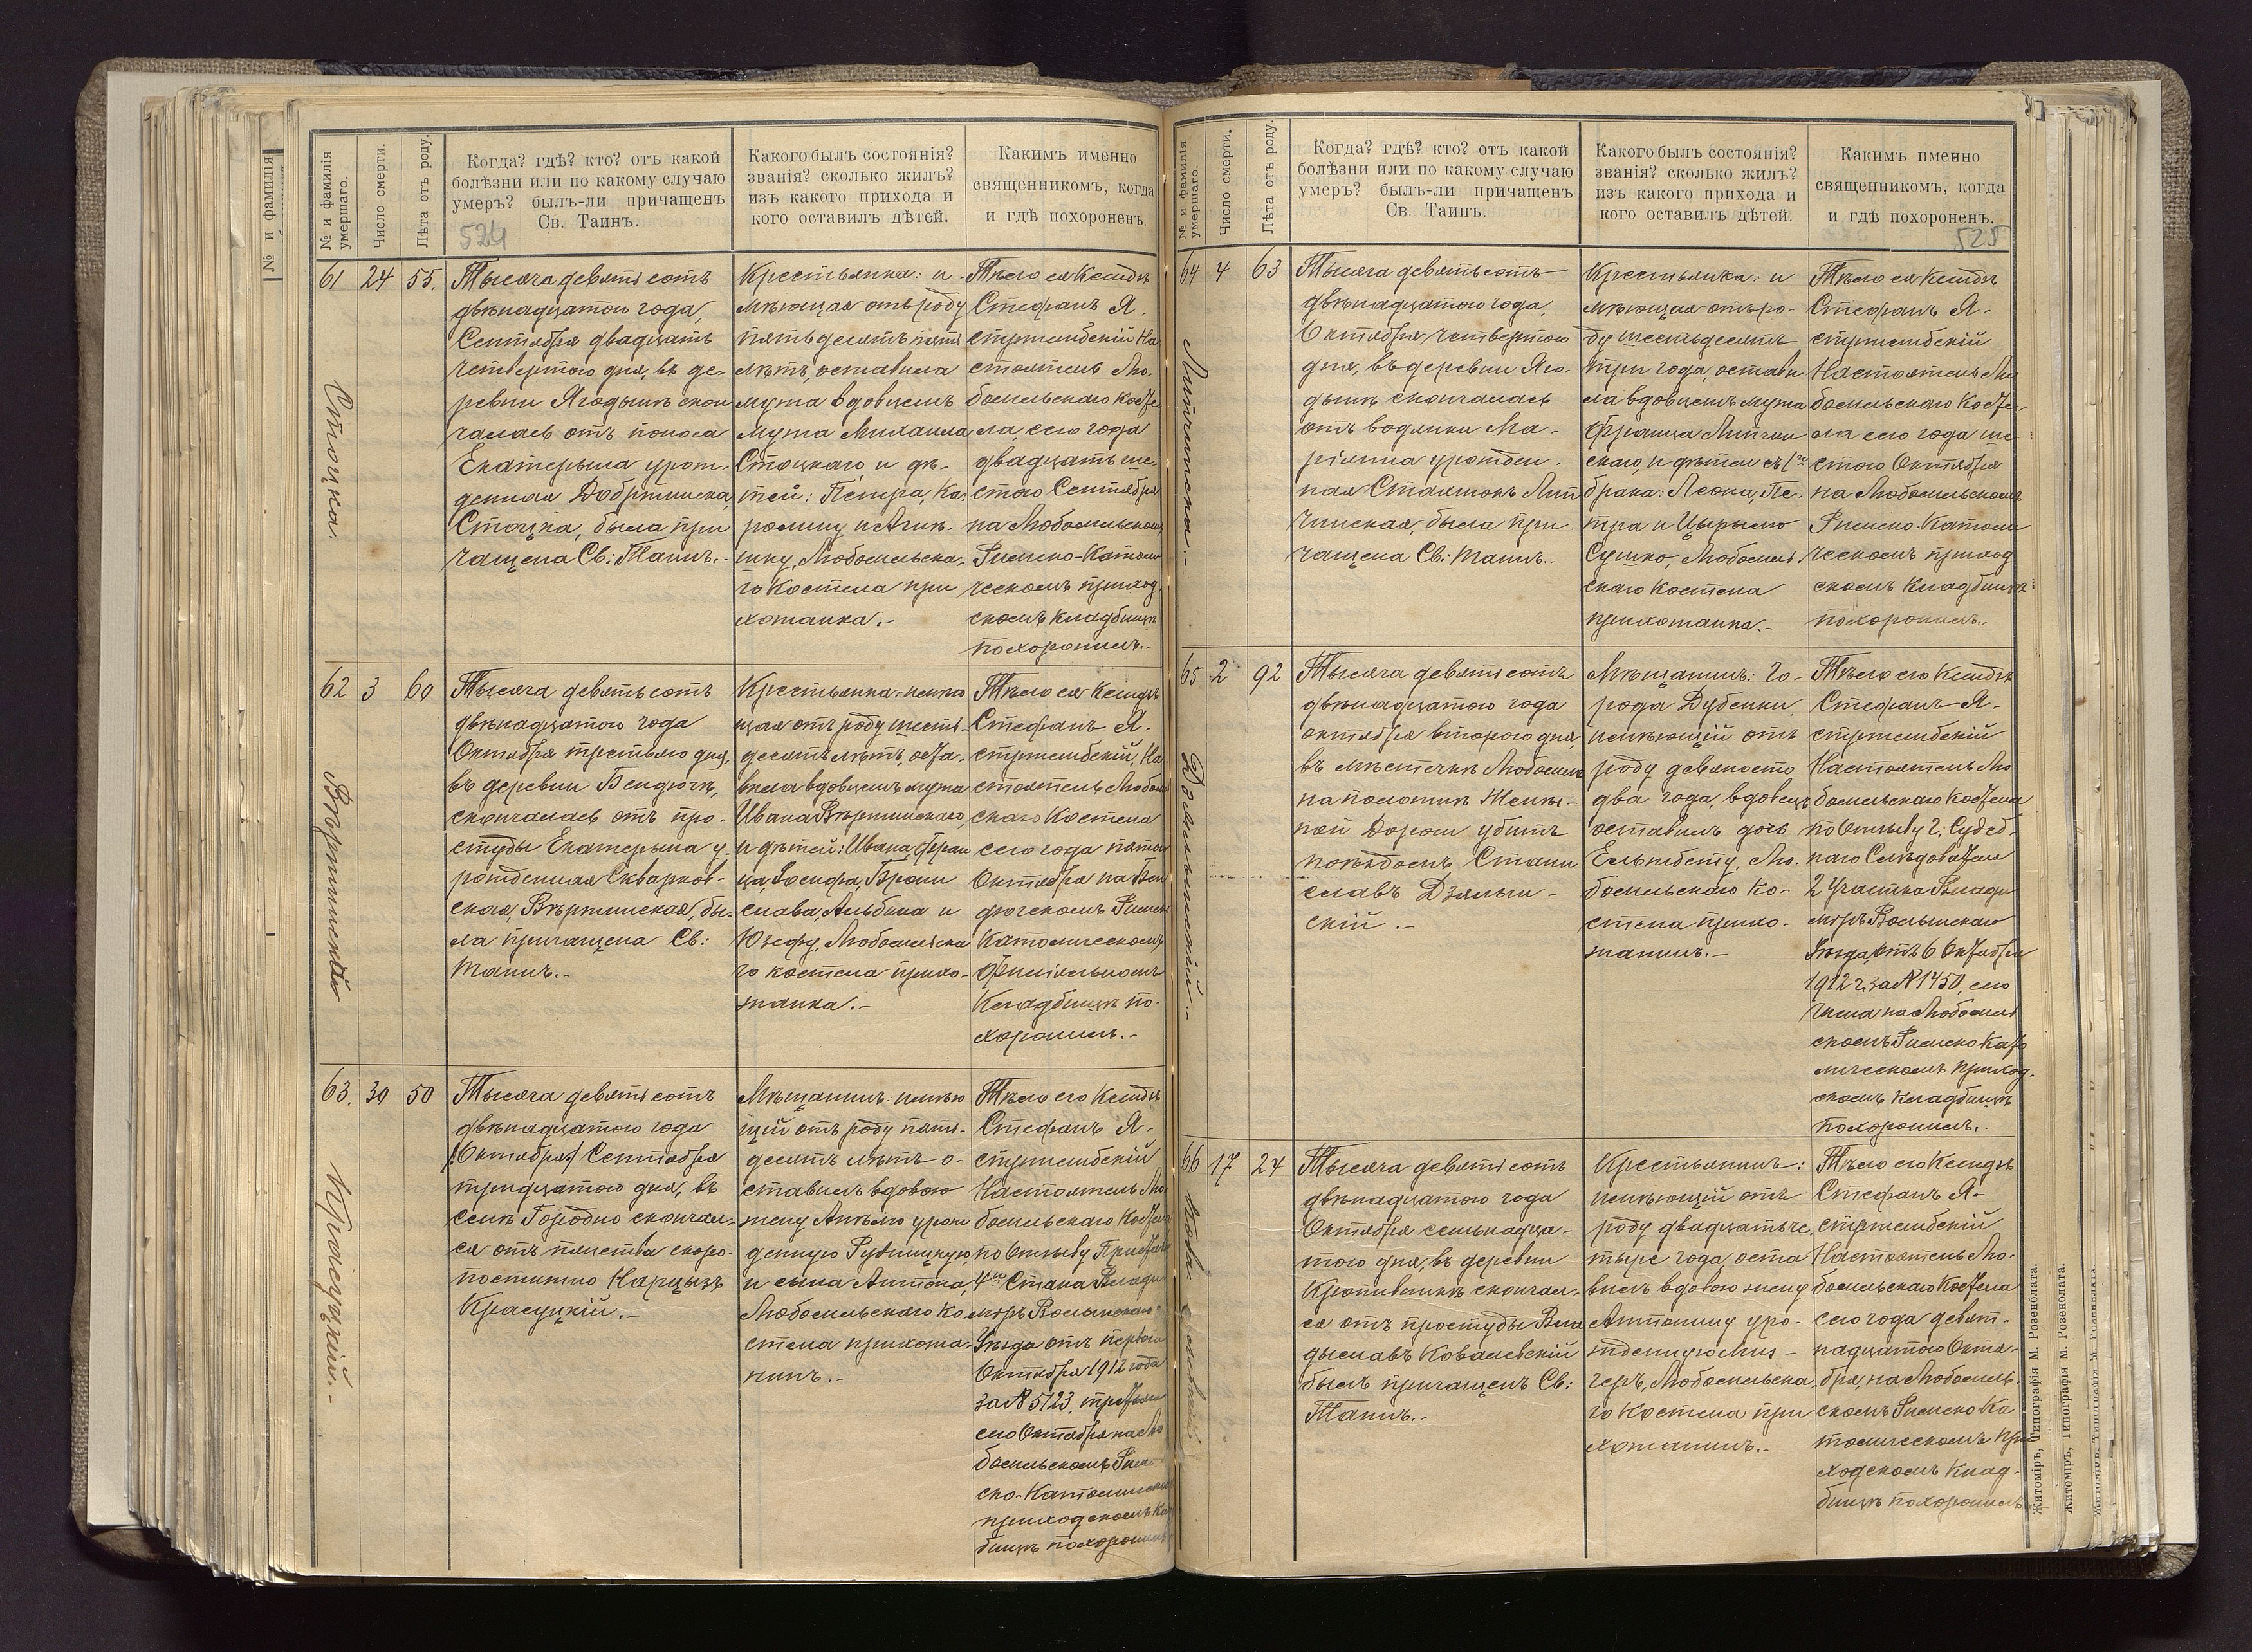 № и фамилія
№ и фамилія умершаго.
Число смерти.
Лѣта отъ роду.
Когда? гдѣ? кто? отъ какой
болѣзни или по какому случаю
умеръ? былъ-ли причащенъ
Св. Таинъ.
524
Какого былъ состоянія?
званія? сколько жилъ?
изъ какого прихода и
кого оставилъ дѣтей.
Какимъ именно
священникомъ, когда
и гдѣ похороненъ.
61
Стоцка
24
55.
Тысяча девятьсотъ
двѣнадцатого года,
Сентября двадцать
четвертого дня, въ де-
ревни Ягодынѣ скон
чалась отъ поноса
Екатерына урож-
денная Добржинска
Стоцка, была при
чащена Св: Таинъ.-
Крестьянка: и
мѣющая отъ роду
пятьдесятъ пять
лѣтъ, оставила
мужа вдовцемъ
мужа Михаила
Стоцкаго, и дѣ-
тей: Петра, Ка-
ролину и Агнѣ-
шку, Любомльска-
го Костела при
хожанка.-
Тѣло ея Ксендзъ
Стефанъ Я-
стржембскій На
стоятель Лю-
бомльскаго Косте
ла, сего года
двадцать ше-
стого Сентября
на Любомльскомъ
Римско-Католи
ческомъ приход
скомъ кладбищѣ
похоронилъ.-
62
3
60
Тысяча девятьсотъ
двѣнадцатого года
Октября третьяго дня,
въ деревни Бендюгѣ,
скончалась отъ про-
студы Екатерына у-
рожденная Скварков-
ская, Вержинская, бы-
ла причащена Св:
Таинъ.-
Крестьянка: имѣю
щая отъ роду шесть-
десятъ лѣтъ, оста-
вила вдовцемъ мужа
Ивана Вержинскаго,
и дѣтей: Ивана, Фран
ца, Іосифа, Брони
слава, Альбина и
Юзефу, Любомльска
го костела прихо-
жанка.-
Тѣло ея Ксендзъ
Стефанъ Я-
стржембскій, На
стоятель Любомль
скаго Костела
сего года пятого
Октября на Бен
дюгскомъ Римско
Католическомъ
филіяльномъ
Кладбищѣ по-
хоронилъ.-
63.
Красуцкій.-
30
50
Тысяча девятьсотъ
двѣнадцатого года
/:Октября:/ Сентября
тридцатого дня, въ
селѣ Городно скончал-
ся отъ пянства скоро-
постижно Нарцызъ
Красуцкій.-
Мѣщанинъ: имѣю
щій отъ роду пять-
десятъ лѣтъ о-
ставилъ вдовою
жену Анѣлю урож
денную Рудницкую,
и сына Антона,
Любомльскаго Ко
стела прихожа-
нинъ.-
Тѣло его Ксендзъ
Стефанъ Я-
стржембскій
Настоятель Лю
бомльскаго Костела
по Отзыву Пристава
4го Стана Влади
міръ Волынскаго
Уѣзда отъ перваго
Октября 1912 года
за № 5123, третьяго
сего Октября на Лю
бомльскомъ Рим
ско-Католическомъ
приходскомъ клад
бищѣ похоронилъ
№ и фамилія умершаго.
Число смерти.
Лѣта отъ роду.
Когда? гдѣ? кто? отъ какой
болѣзни или по какому случаю
умеръ? былъ-ли причащенъ
Св. Таинъ.
Какого былъ состоянія?
званія? сколько жилъ?
изъ какого прихода и
кого оставилъ дѣтей.
Какимъ именно
священникомъ, когда
и гдѣ похороненъ.
525
64
4
63
Тысяча девятьсотъ
двѣнадцатого года,
Октября четвертого
дня, въ деревни Яго-
дынѣ скончалась
отъ водянки Ма-
ріянна урожден-
ная Стаянокъ Лип
чинская, была при-
чащена Св: Таинъ.-
Крестьянка: и
мѣющая отъ ро-
ду шестьдесятъ
три года, остави
ла вдовцемъ мужа
Франца Липчин
скаго, и дѣтей съ 1го
брака: Леона, Пе-
тра и Цырылю
Сушко, Любомль
скаго Костела
прихожанка.-
Тѣло ея Ксендзъ
Стефанъ Я-
стржембскій
Настоятель Лю
бомльскаго Косте-
ла сего года ше
стого Октября
на Любомльскомъ
Римско-Католи
ческомъ приход
скомъ Кладбищѣ
похоронилъ.
65
2
92
Тысяча девятьсотъ
двѣнадцатого года
октября второго дня,
въ мѣстечкѣ Любомлѣ
на полотнѣ Желѣз-
ной Дороги убитъ
поѣздомъ, Стани
славъ Дзялын-
скій.-
Мѣщанинъ: Го-
рода Дубенки
имѣющій отъ
роду девяносто
два года, вдовецъ
оставилъ дочь
Ельжбету, Лю-
бомльскаго Ко-
стела прихо-
жанинъ.-
Тѣло его Ксендзъ
Стефанъ Я-
стржембскій
Настоятель Лю
бомльскаго Костела
по Отзыву Г: Судеб-
наго Слѣдователя
2 Участка Влади
міръ Волынскаго
Уѣзда, отъ 6 Октября
1912 г. за № 1450, сего
числа на Любомль
скомъ Римско Като
лическомъ приход-
скомъ кладбищѣ
похоронилъ.
66
17
24
Тысяча девятьсотъ
двѣнадцатого года
Октября семьнадца-
того дня, въ деревни
Кропивникѣ скончал-
ся отъ простуды Вла
дыславъ Ковалевскій
былъ причащенъ Св:
Таинъ.-
Крестьянинъ:
имѣющій отъ
роду двадцать че-
тыре года, оста
вилъ вдовою жену
Антонину уро-
жденную
Любомльска-
го Костела при
хожанинъ.-
Тѣло его Ксендзъ
Стефанъ Я-
стржембскій
Настоятель Лю-
бомльскаго Костела
сего года девят-
надцатого Октя-
бря, на Любомль-
скомъ Римско Ка
толическомъ при
ходскомъ Клад-
бищѣ похоронилъ
Житоміръ, Типографія М. Розенблата.
Житоміръ, Типографія М. Розенблата.